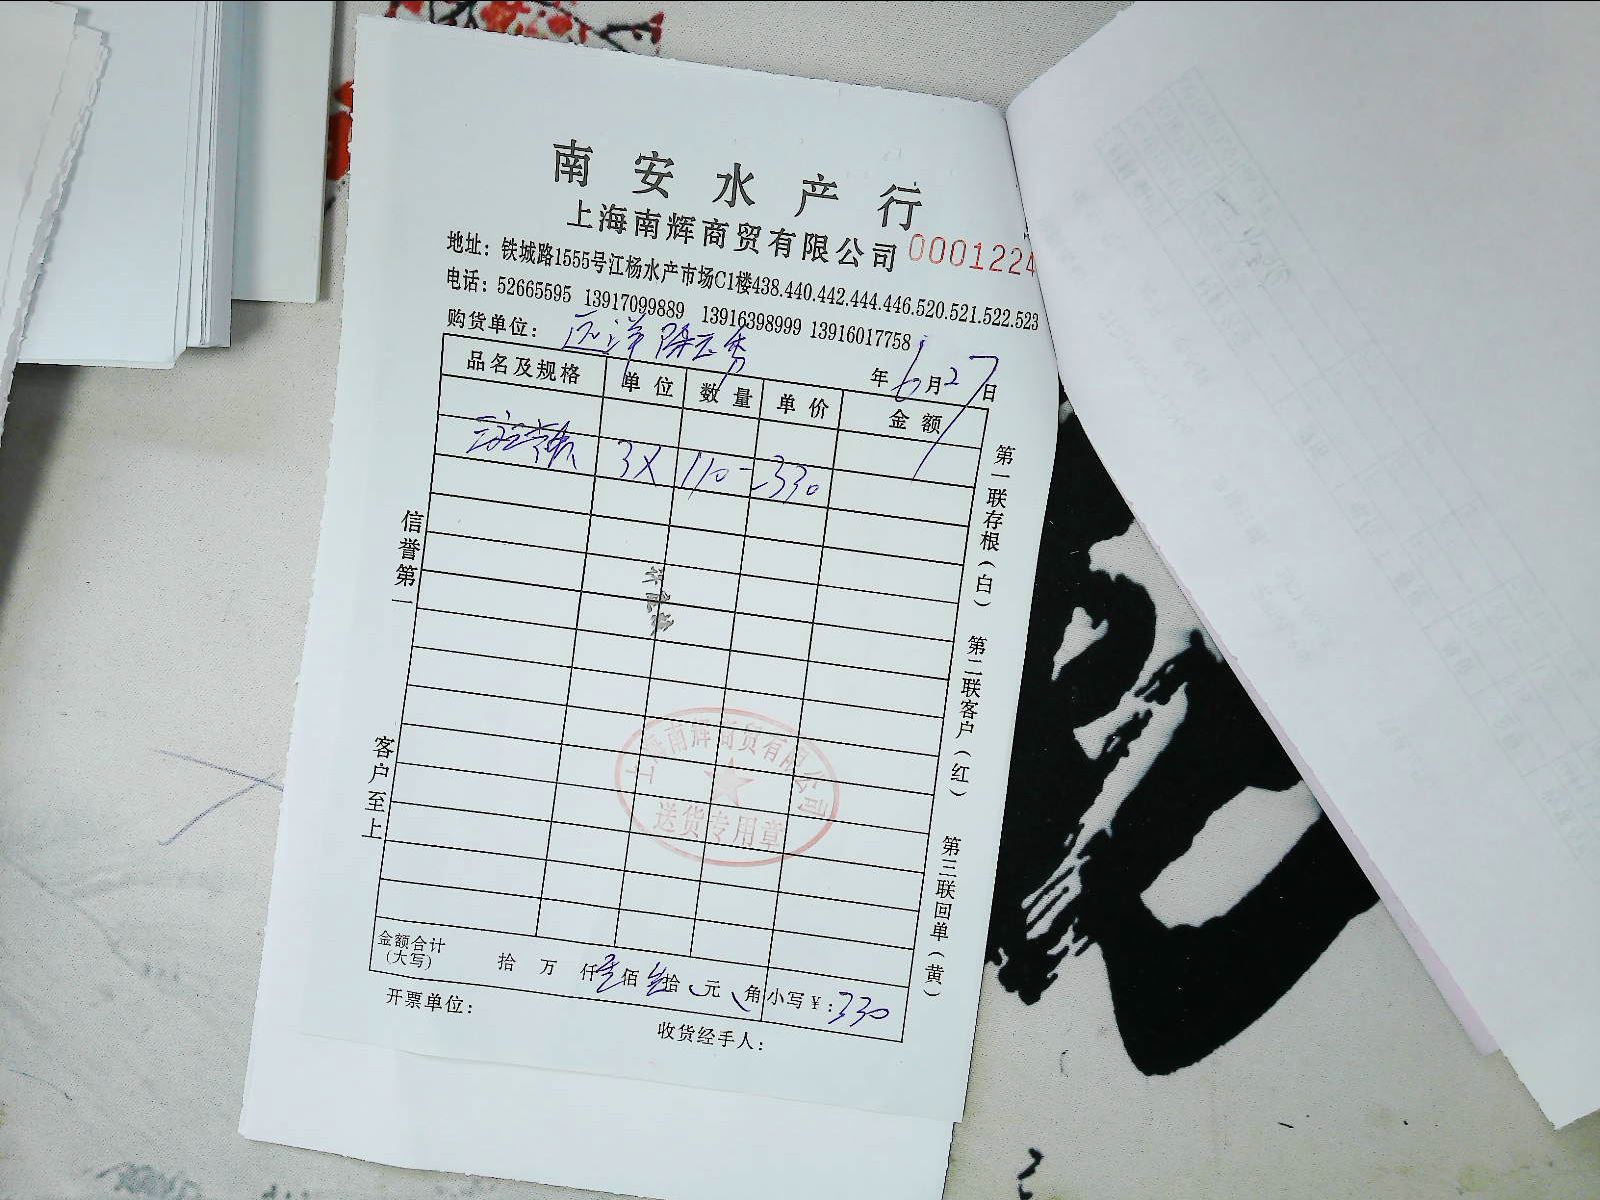 南安水产行
上海南辉商贸有限公司 0001224
地址：铁城路1555号江杨水产市场C1楼438.440.442.444.446.520.521.522.523
电话：52665595 13917099889 13916398999 13916017758
购货单位：远洋陈玉秀 年6月27日
品名及规格 单位 数量 单价 金额
3X 110 = 330
信誉第一
客户至上
第一联存根（白）
第二联客户（红）
第三联回单（黄）
上海南辉商贸有限公司
送货专用章
金额合计（大写） 拾 万 仟 叁 佰 叁 拾 元 角 小写￥：330
开票单位：
收货经手人：